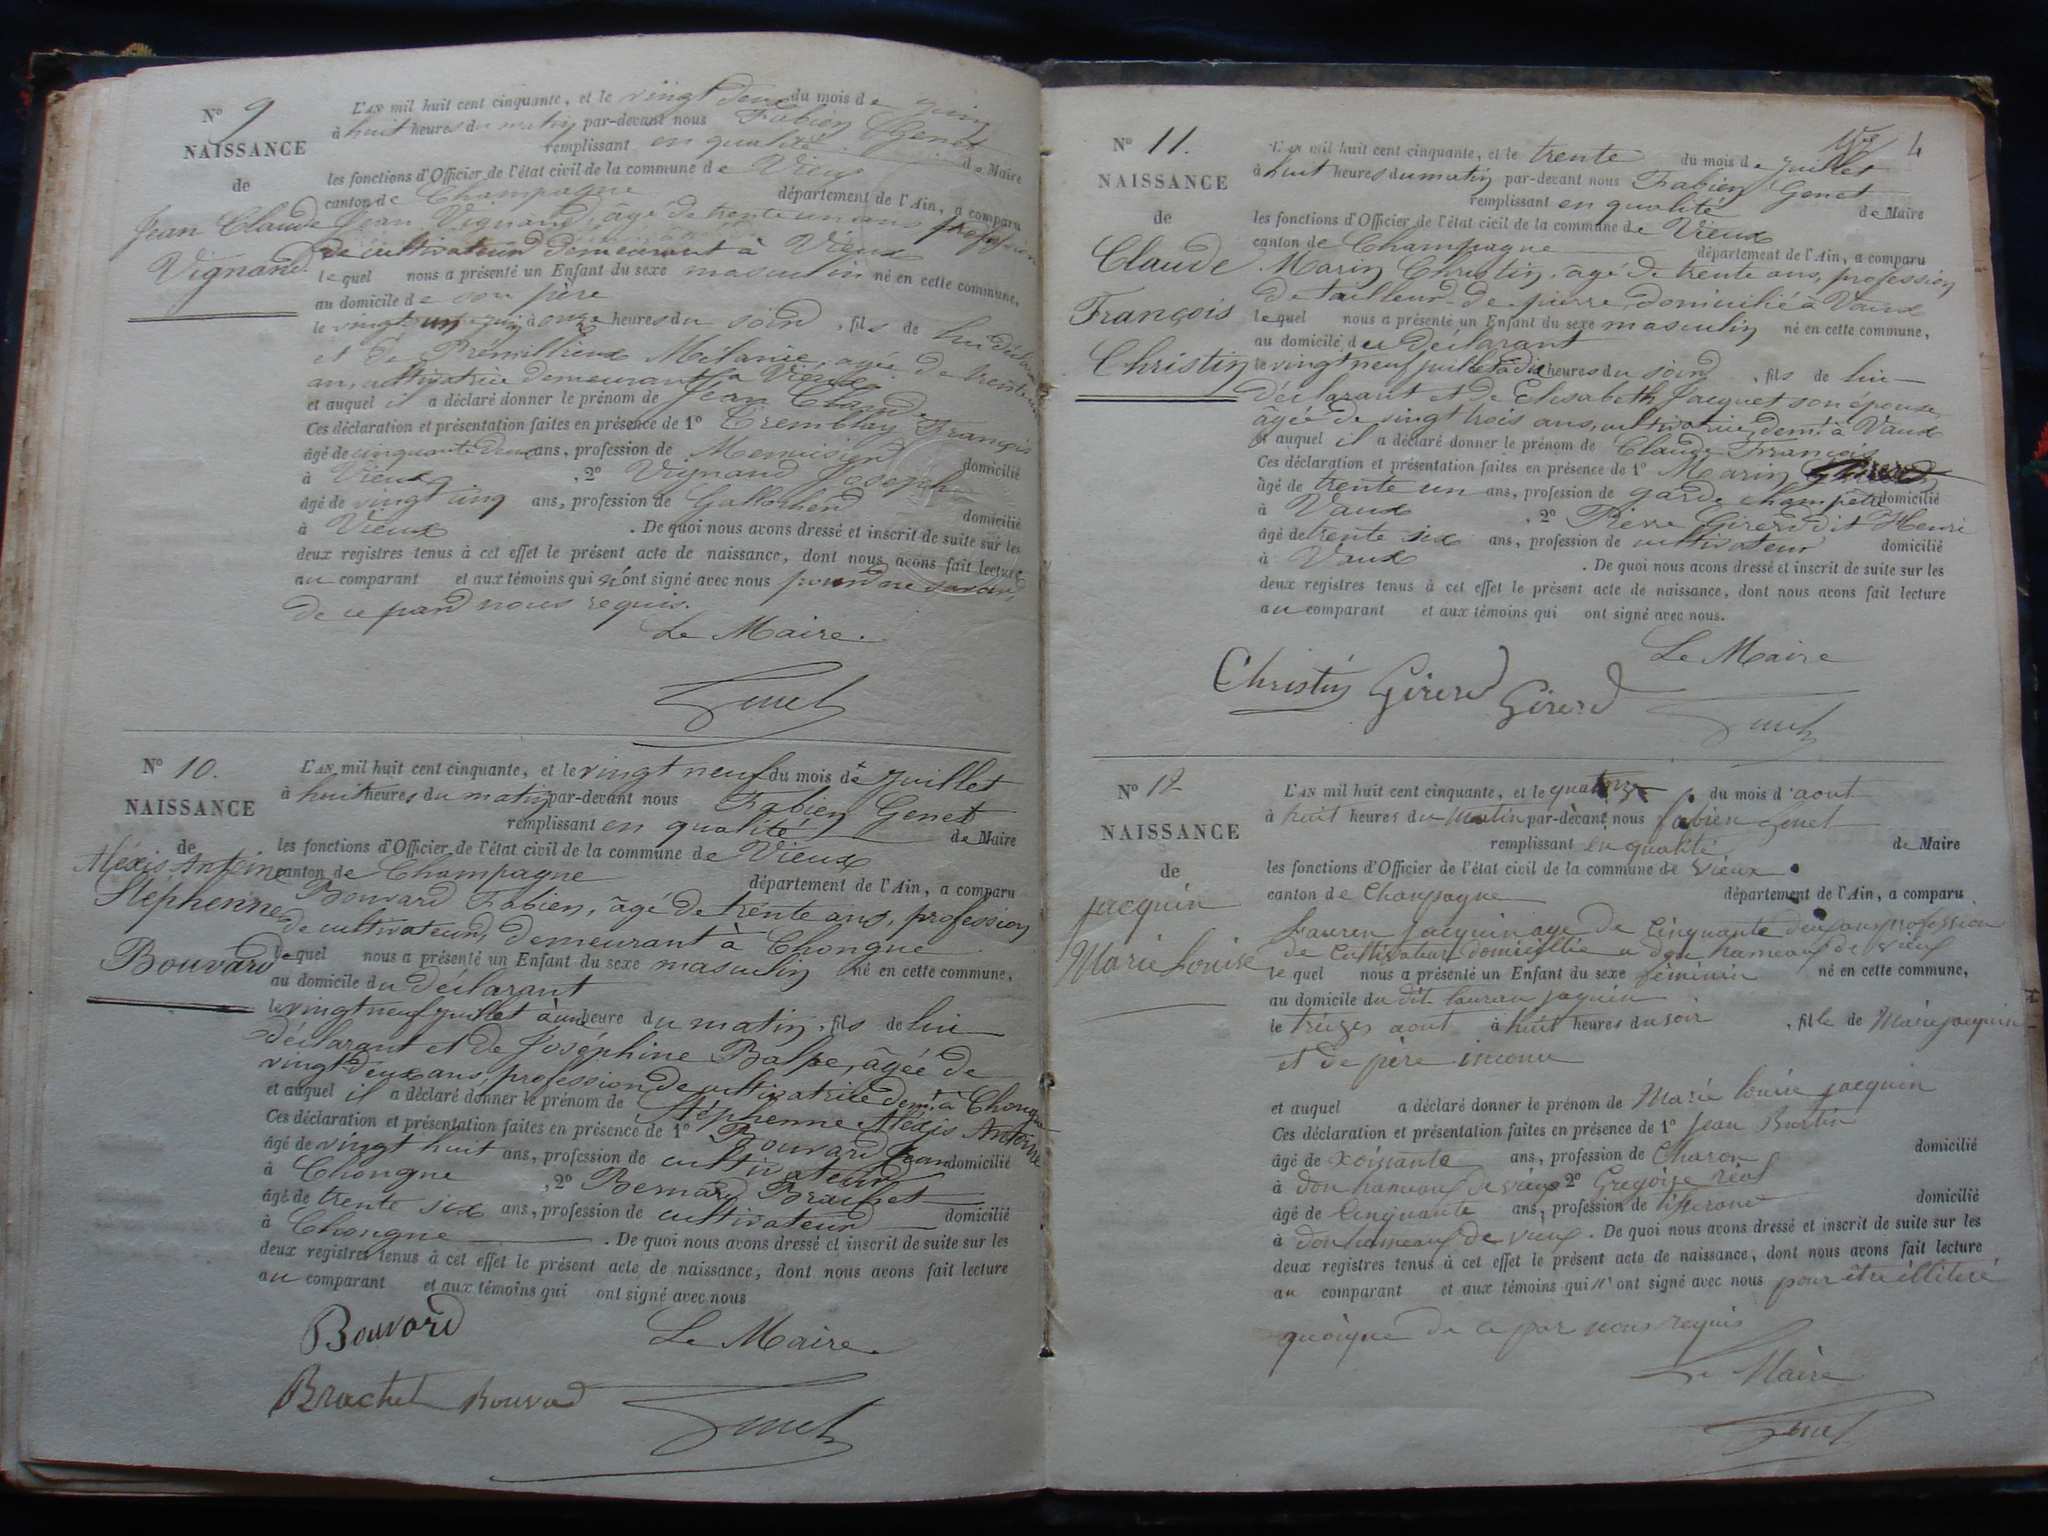 N° 9
NAISSANCE
de
Jean Claude
Vignand
L'AN mil huit cent cinquante, et le vingt deux du mois de juin
à huit heures du matin par-devant nous Fabien Genet
remplissant en qualité de Maire
les fonctions d'Officier de l'état civil de la commune de Vieux
canton de Champagne département de l'Ain, a comparu
Jean Vignand, âgé de trente un ans profession
de cultivateur demeurant à Vieux
lequel nous a présenté un Enfant du sexe masculin né en cette commune,
au domicile de son père
le vingt un juin à onze heures du soir, fils de lui déclarant
et de Prémillieux Mélanie, agée de trente un
an, cultivatrice demeurant à Vieux
et auquel il a déclaré donner le prénom de Jean Claude
Ces déclaration et présentation faites en présence de 1° Tremblay François
âgé de cinquante deux ans, profession de Menuisier domicilié
à Vieux, 2° Vignand Joseph
âgé de vingt cinq ans, profession de domicilié
à Vieux. De quoi nous avons dressé et inscrit de suite sur les
deux registres tenus à cet effet le présent acte de naissance, dont nous avons fait lecture
au comparant et aux témoins qui n'ont signé avec nous pour ne savoir
de ce pard nous requis.
Le Maire.
Genet
N° 10.
NAISSANCE
de
Aléxis Antoine
Stephenne
Bouvard
L'AN mil huit cent cinquante, et le vingt neuf du mois de juillet
à huit heures du matin par-devant nous Fabien Genet
remplissant en qualité de Maire
les fonctions d'Officier de l'état civil de la commune de Vieux
canton de Champagne département de l'Ain, a comparu
Bouvard Fabien, âgé de trente ans, profession
de cultivateur, demeurant à Chongne
lequel nous a présenté un Enfant du sexe masculin né en cette commune,
au domicile du déclarant
le vingt neuf juillet à une heure du matin, fils de lui
déclarant et de Joséphine Balpe, âgée de
vingt deux ans, profession de cultivatrice demt. à Chongne
et auquel il a déclaré donner le prénom de Stéphenne Aléxis Antoine
Ces déclaration et présentation faites en présence de 1° Bouvard Jean
âgé de vingt huit ans, profession de cultivateur domicilié
à Chongne, 2° Bernard Brachet
âgé de trente six ans, profession de cultivateur domicilié
à Chongne. De quoi nous avons dressé et inscrit de suite sur les
deux registres tenus à cet effet le présent acte de naissance, dont nous avons fait lecture
au comparant et aux témoins qui ont signé avec nous
Bouvard Le Maire.
Brachet Bouvard Genet
4
N° 11.
NAISSANCE
de
Claude
François
Christin
L'AN mil huit cent cinquante, et le trente du mois de juillet
à huit heures du matin par-devant nous Fabien Genet
remplissant en qualité de Maire
les fonctions d'Officier de l'état civil de la commune de Vieux
canton de Champagne département de l'Ain, a comparu
Marin Christin, âgé de trente ans, profession
de tailleur de pierre, domicilié à Vaux
lequel nous a présenté un Enfant du sexe masculin né en cette commune,
au domicile du déclarant
le vingt neuf juillet à dix heures du soir, fils de lui
déclarant et de Elisabeth Jacquet son épouse
âgée de vingt trois ans, cultivatrice, demt. à Vaux
et auquel il a déclaré donner le prénom de Claude François
Ces déclaration et présentation faites en présence de 1° Marin Girerd
âgé de trente un ans, profession de garde champetre domicilié
à Vaux, 2° Pierre Girerd dit Henri
âgé de trente six ans, profession de cultivateur domicilié
à Vaux. De quoi nous avons dressé et inscrit de suite sur les
deux registres tenus à cet effet le présent acte de naissance, dont nous avons fait lecture
au comparant et aux témoins qui ont signé avec nous.
Le Maire
Christin Girerd Girerd Genet
N° 12
NAISSANCE
de
jacquin
Marie Louise
L'AN mil huit cent cinquante, et le quatorze du mois d'aout
à huit heures du matin par-devant nous fabien genet
remplissant en qualité de Maire
les fonctions d'Officier de l'état civil de la commune de vieux
canton de Champagne département de l'Ain, a comparu
Lauren jacquin age de Cinquante deux ans profession
de Cultivateur domicillié a don hameaux de vieux
lequel nous a présenté un Enfant du sexe féminin né en cette commune,
au domicile du dit lauren jaquin
le treizes aout à huit heures du soir, fille de Marie jacquin
et de père inconu
et auquel a déclaré donner le prénom de Marie louise jacquin
Ces déclaration et présentation faites en présence de 1° jean Burtin
âgé de xoissante ans, profession de Charon domicilié
à don hameaux de vieux 2° Gregoire réal
âgé de Cinquante ans, profession de tisserand domicilié
à don hameaux de vieux. De quoi nous avons dressé et inscrit de suite sur les
deux registres tenus à cet effet le présent acte de naissance, dont nous avons fait lecture
au comparant et aux témoins qui n'ont signé avec nous pour être illiteré
quoique de ce par nous requis
Le Maire
Genet